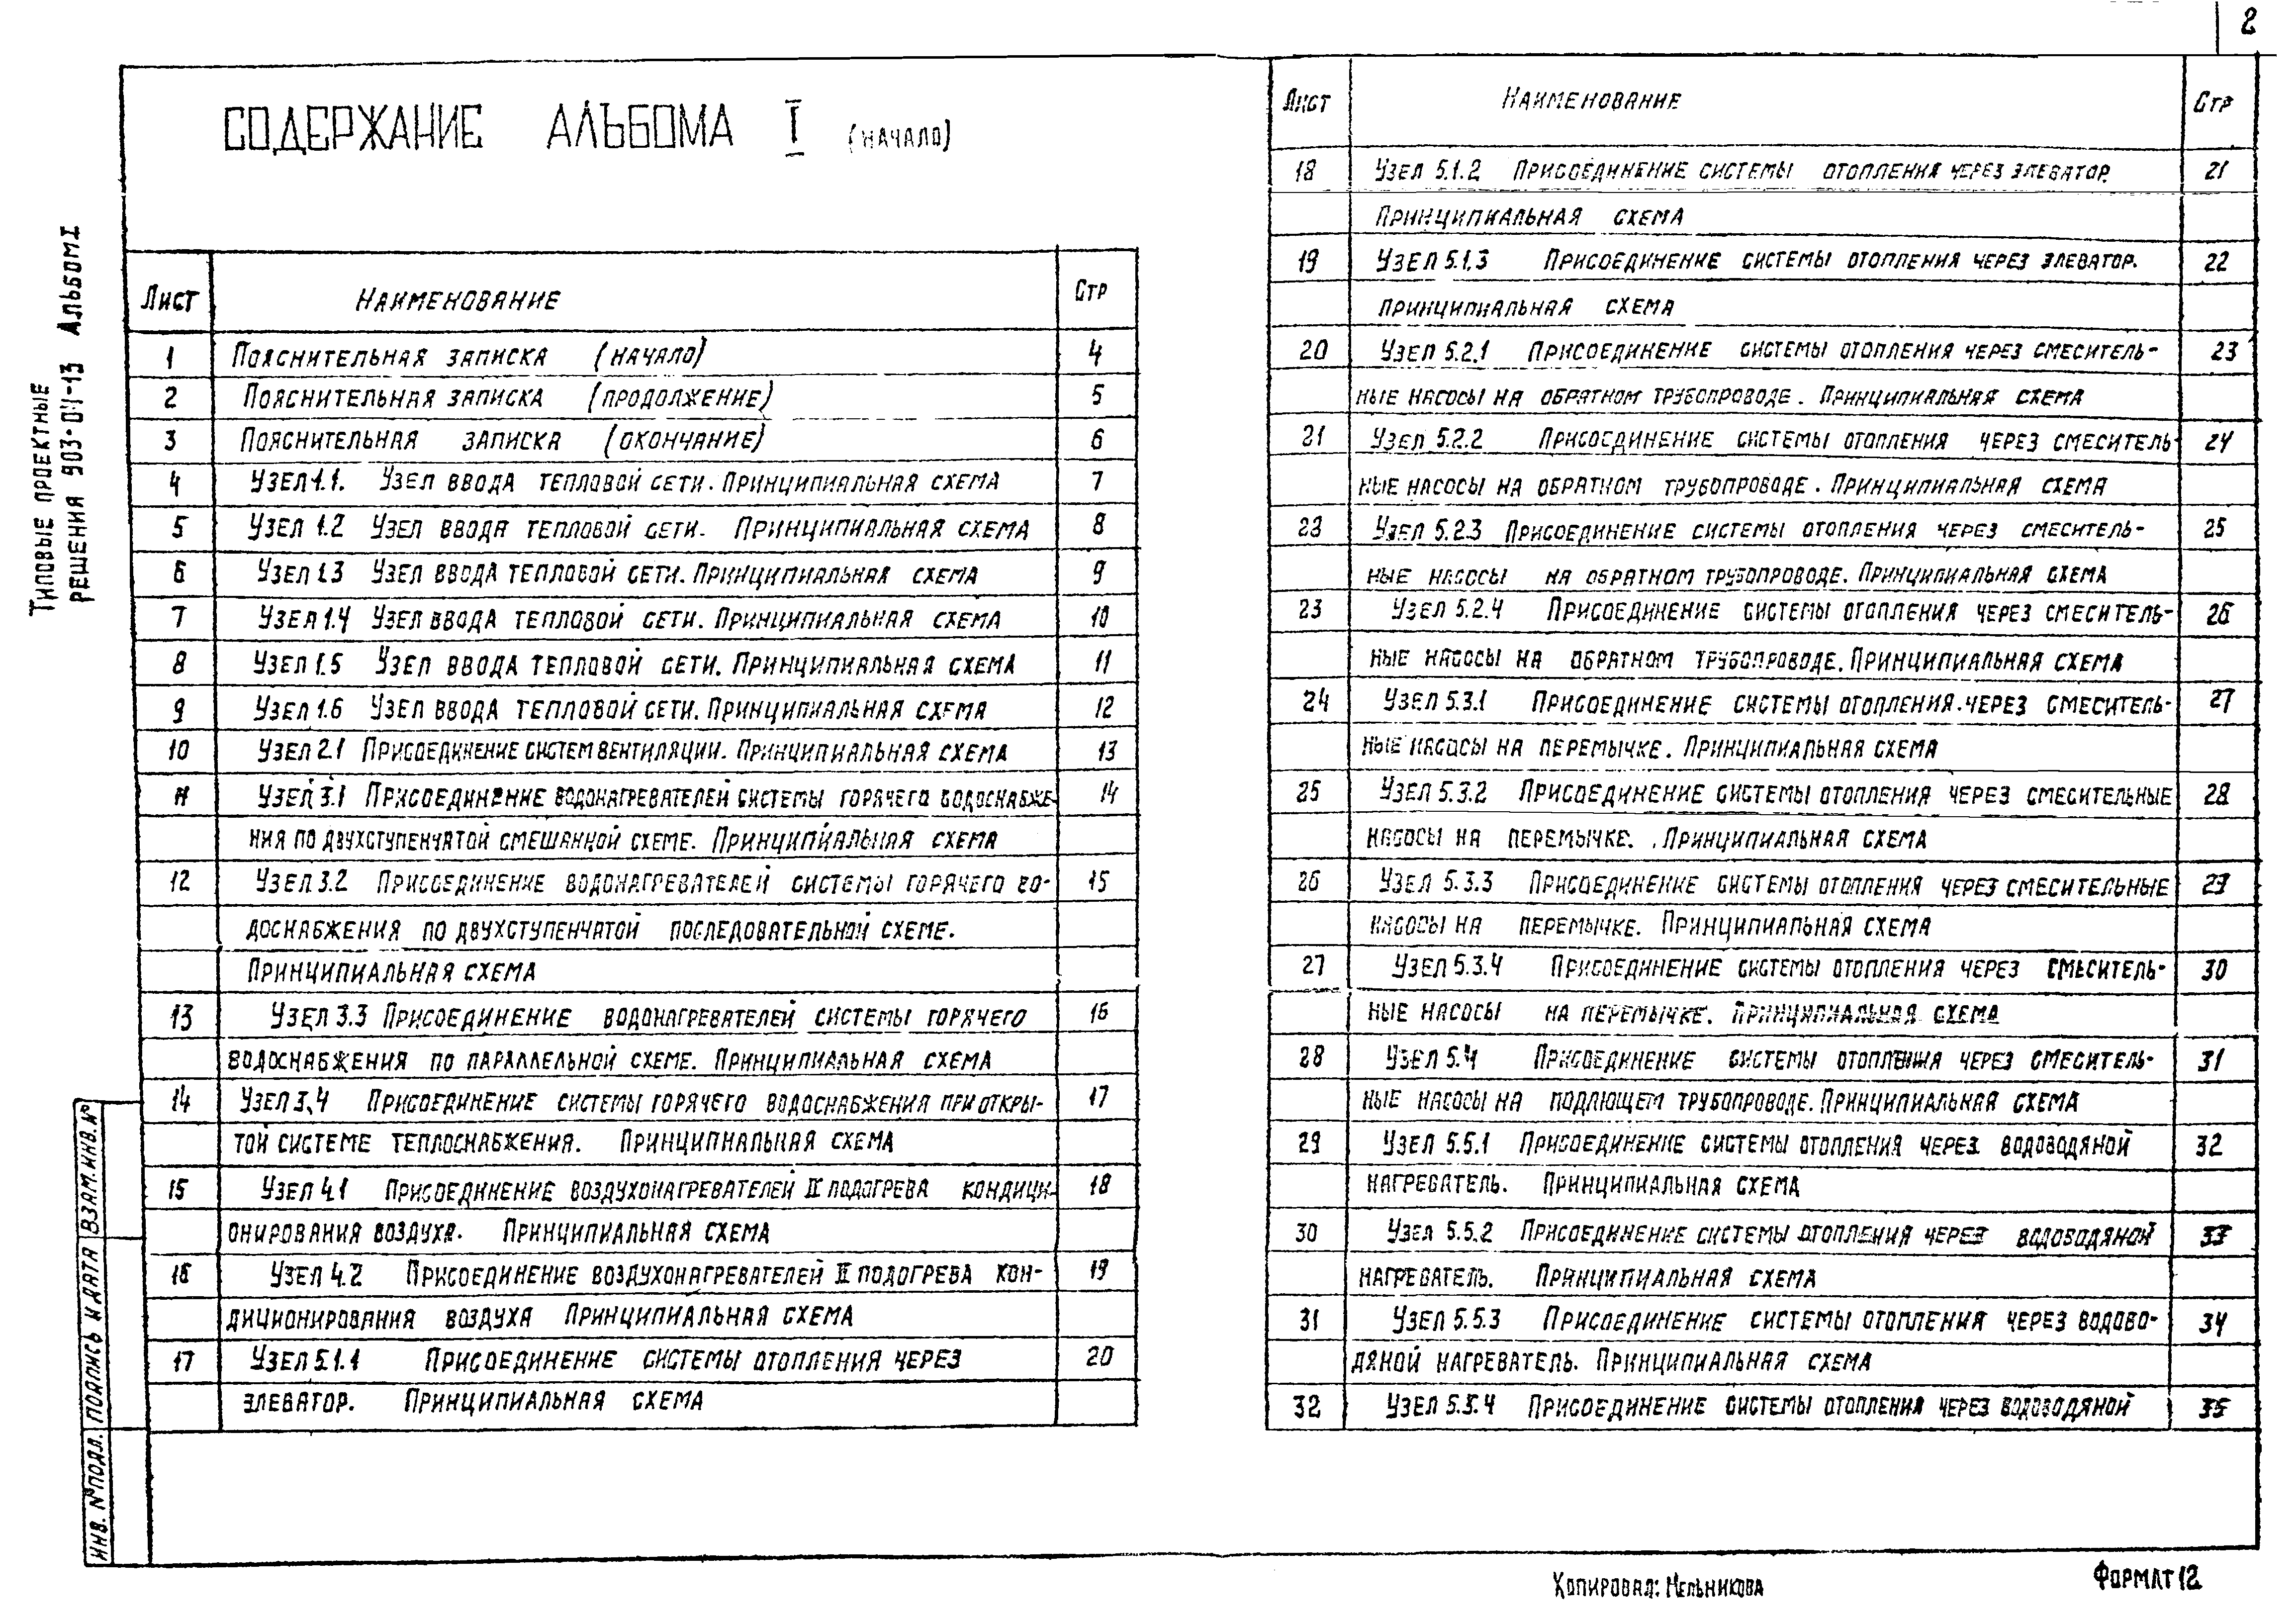 2
СОДЕРЖАНИЕ АЛЬБОМА I (НАЧАЛО)
ТИПОВЫЕ ПРОЕКТНЫЕ
РЕШЕНИЯ 903-04-13 АЛЬБОМ I
Лист НАИМЕНОВАНИЕ Стр
1 Пояснительная записка (начало) 4
2 Пояснительная записка (продолжение) 5
3 Пояснительная записка (окончание) 6
4 Узел 1.1. Узел ввода тепловой сети. Принципиальная схема 7
5 Узел 1.2 Узел ввода тепловой сети. Принципиальная схема 8
6 Узел 1.3 Узел ввода тепловой сети. Принципиальная схема 9
7 Узел 1.4 Узел ввода тепловой сети. Принципиальная схема 10
8 Узел 1.5 Узел ввода тепловой сети. Принципиальная схема 11
9 Узел 1.6 Узел ввода тепловой сети. Принципиальная схема 12
10 Узел 2.1 Присоединение систем вентиляции. Принципиальная схема 13
11 Узел 3.1 Присоединение водонагревателей системы горячего водоснабже-
ния по двухступенчатой смешанной схеме. Принципиальная схема 14
12 Узел 3.2 Присоединение водонагревателей системы горячего во- 15
доснабжения по двухступенчатой последовательной схеме.
Принципиальная схема
13 Узел 3.3 Присоединение водонагревателей системы горячего 16
водоснабжения по параллельной схеме. Принципиальная схема
14 Узел 3.4 Присоединение системы горячего водоснабжения при откры- 17
той системе теплоснабжения. Принципиальная схема
15 Узел 4.1 Присоединение воздухонагревателей II подогрева кондици- 18
онирования воздуха. Принципиальная схема
16 Узел 4.2 Присоединение воздухонагревателей II подогрева кон- 19
диционирования воздуха Принципиальная схема
17 Узел 5.1.1 Присоединение системы отопления через 20
элеватор. Принципиальная схема
Лист НАИМЕНОВАНИЕ Стр
18 Узел 5.1.2 Присоединение системы отопления через элеватор. 21
Принципиальная схема
19 Узел 5.1.3 Присоединение системы отопления через элеватор. 22
Принципиальная схема
20 Узел 5.2.1 Присоединение системы отопления через смеситель- 23
ные насосы на обратном трубопроводе. Принципиальная схема
21 Узел 5.2.2 Присоединение системы отопления через смеситель- 24
ные насосы на обратном трубопроводе. Принципиальная схема
23 Узел 5.2.3 Присоединение системы отопления через смеситель- 25
ные насосы на обратном трубопроводе. Принципиальная схема
23 Узел 5.2.4 Присоединение системы отопления через смеситель- 26
ные насосы на обратном трубопроводе. Принципиальная схема
24 Узел 5.3.1 Присоединение системы отопления через смеситель- 27
ные насосы на перемычке. Принципиальная схема
25 Узел 5.3.2 Присоединение системы отопления через смесительные 28
насосы на перемычке. Принципиальная схема
26 Узел 5.3.3 Присоединение системы отопления через смесительные 29
насосы на перемычке. Принципиальная схема
27 Узел 5.3.4 Присоединение системы отопления через смеситель- 30
ные насосы на перемычке. Принципиальная схема
28 Узел 5.4 Присоединение системы отопления через смеситель- 31
ные насосы на подающем трубопроводе. Принципиальная схема
29 Узел 5.5.1 Присоединение системы отопления через водоводяной 32
нагреватель. Принципиальная схема
30 Узел 5.5.2 Присоединение системы отопления через водоводяной 33
нагреватель. Принципиальная схема
31 Узел 5.5.3 Присоединение системы отопления через водово- 34
дяной нагреватель. Принципиальная схема
32 Узел 5.5.4 Присоединение системы отопления через водоводяной 35
ИНВ. № ПОДЛ. ПОДПИСЬ И ДАТА ВЗАМ. ИНВ. №
Копировал: Мельникова
Формат 12